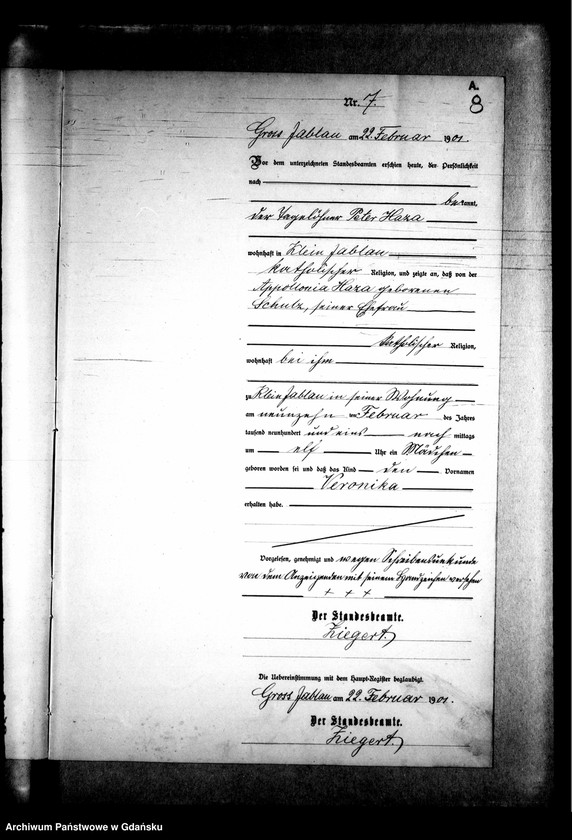 A.
8
Nr. 7.
Gross Jablau am 22 Februar 1901.
Vor dem unterzeichneten Standesbeamten erschien heute, der Persönlichkeit
nach
bekannt,
der Tagelöhner Peter Haza
wohnhaft in Klein Jablau
katholischer Religion, und zeigte an, daß von der
Appollonia Haza geborenen
Schulz, seiner Ehefrau
katholischer Religion,
wohnhaft bei ihm
zu Klein Jablau in seiner Wohnung
am neunzehn Februar des Jahres
tausend neunhundert und eins nach mittags
um elf Uhr ein Mädchen
geboren worden sei und daß das Kind den Vornamen
Veronika
erhalten habe.
Vorgelesen, genehmigt und wegen Schreibensunkunde
von dem Anzeigenden mit seinem Handzeichen versehen
+ + +
Der Standesbeamte.
Ziegert.
Die Uebereinstimmung mit dem Haupt-Register beglaubigt.
Gross Jablau am 22. Februar 1901.
Der Standesbeamte.
Ziegert.
Archiwum Państwowe w Gdańsku